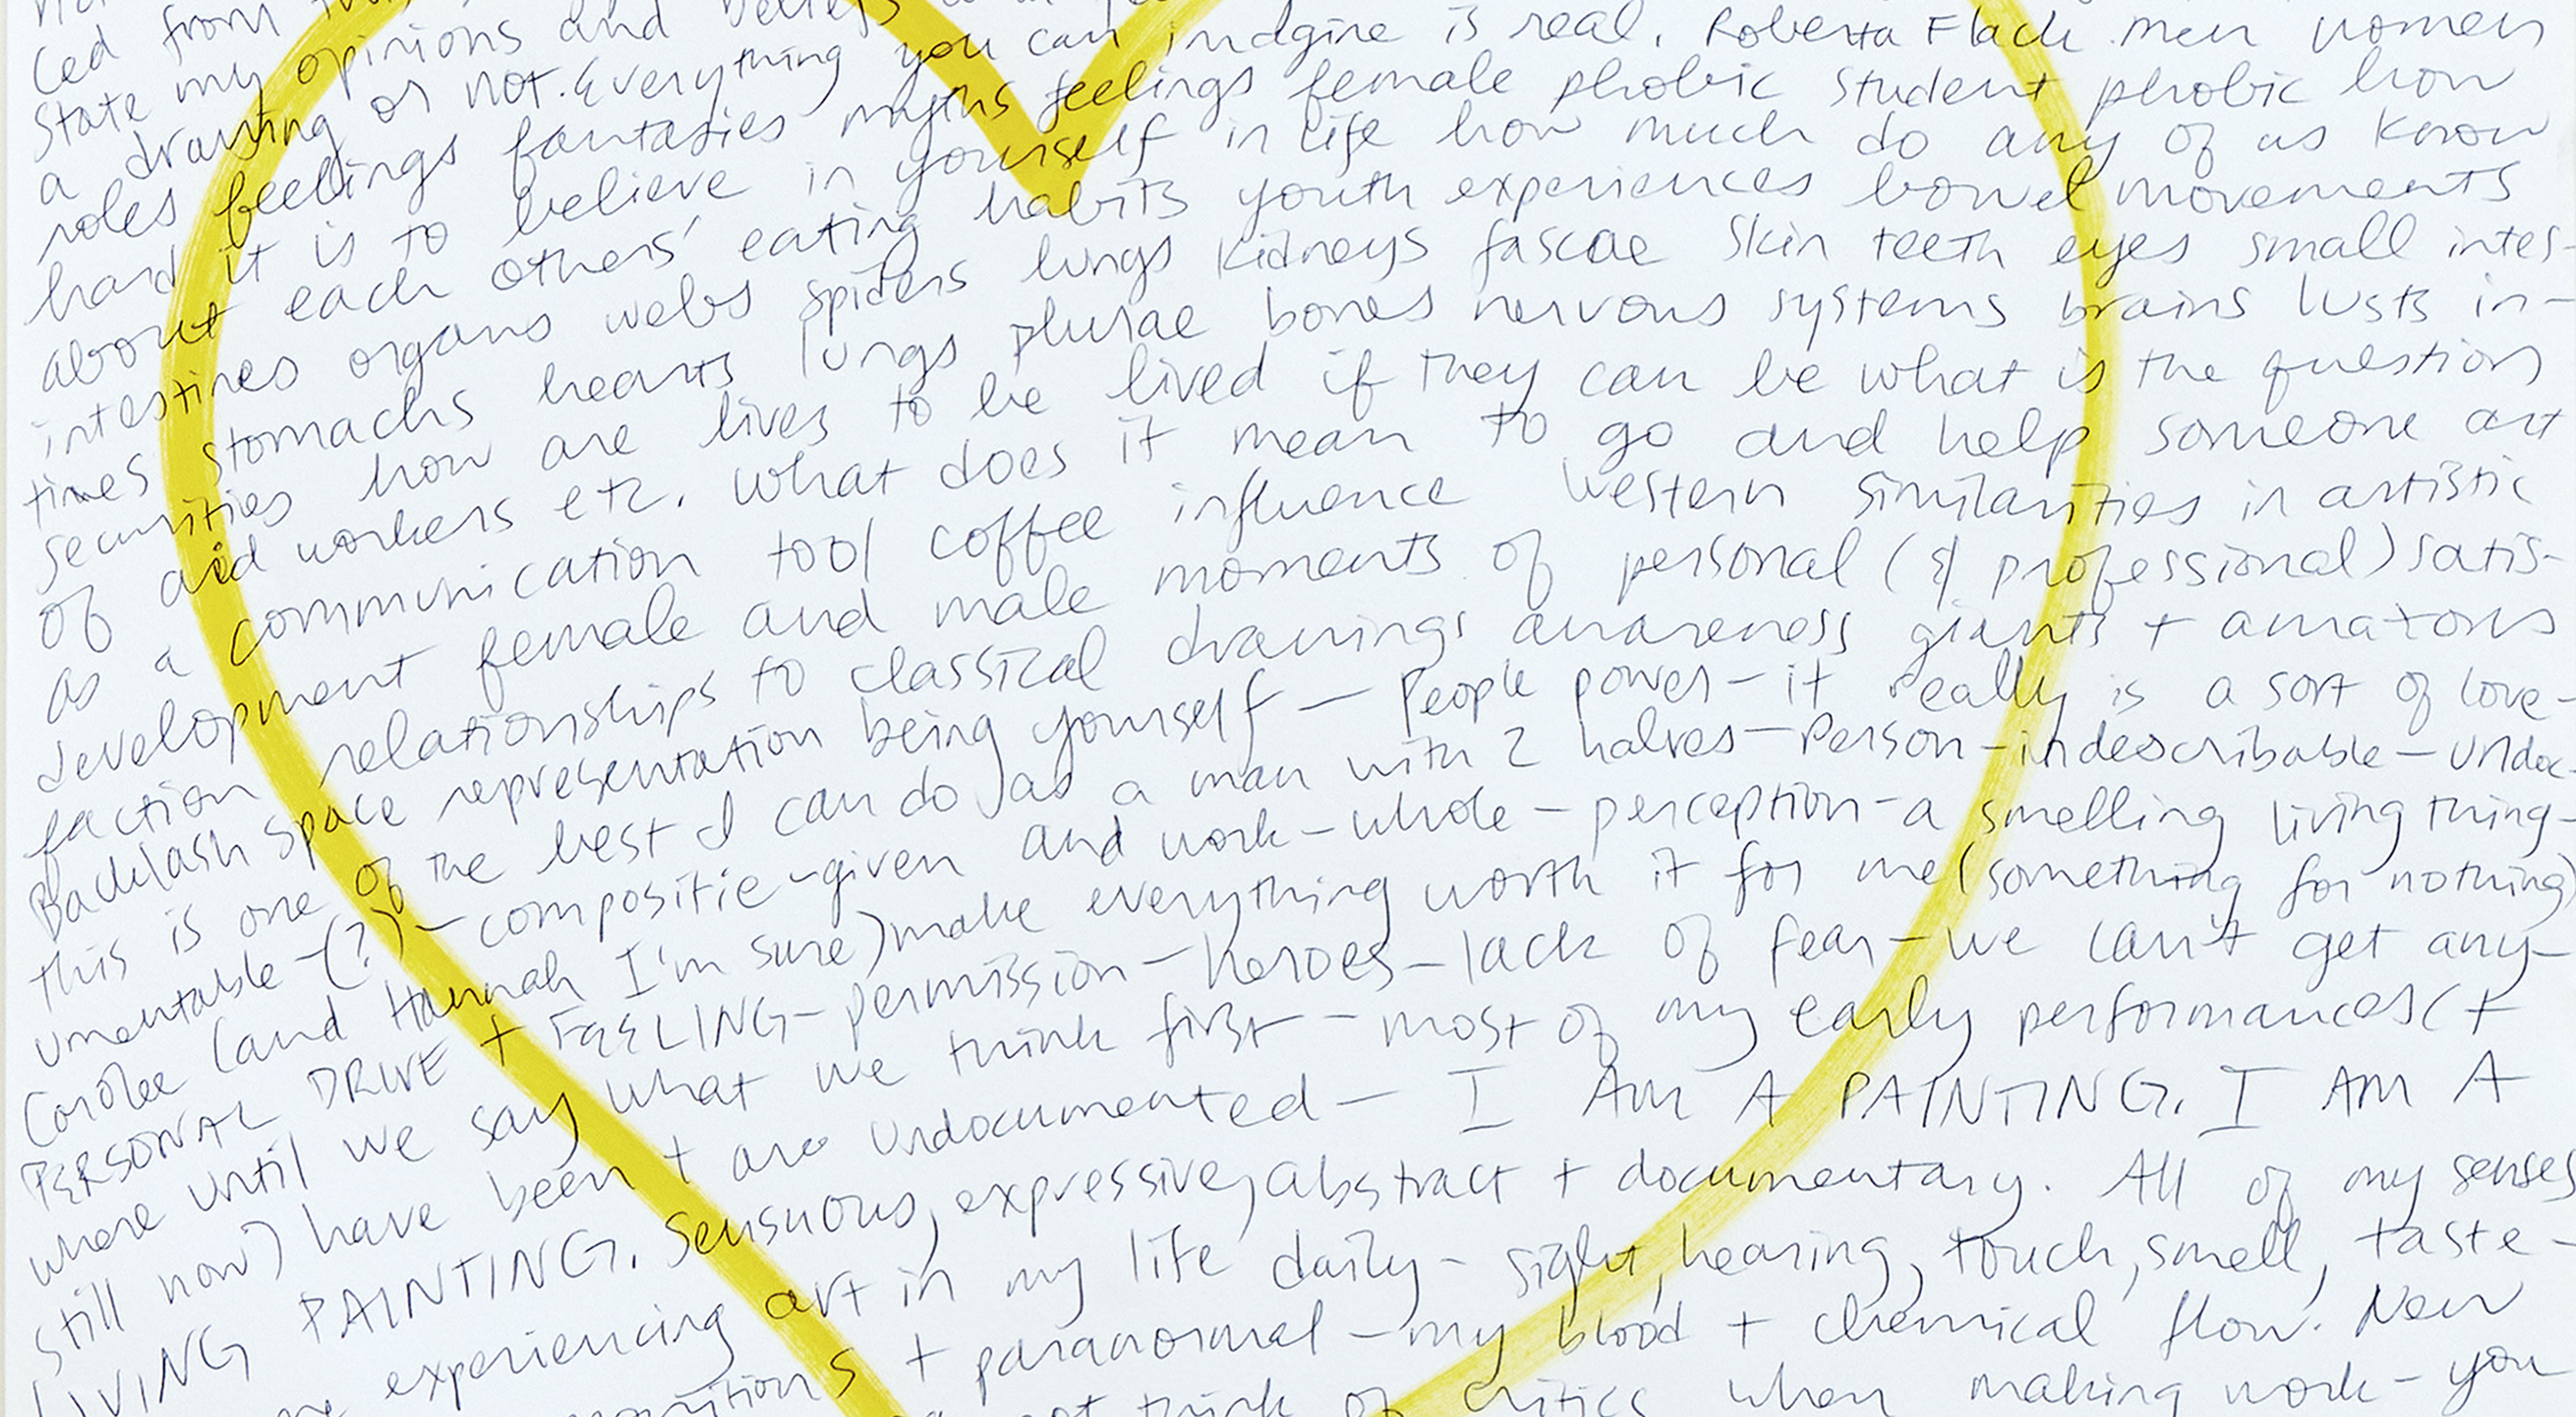 ced from
state my opinions and beliefs
a drawing or not. Everything you can imdgine is real. Roberta Flack men women
roles feelings fantasies myths feelings female phobic student phobic how
hard it is to believe in yourself in life how much do any of us know
about each others' eating habits youth experiences bowel movements
intestines organs webs spiders lungs kidneys fascae skin teeth eyes small intes-
tines stomachs hearts lungs plurae bones nervous systems brains lusts in-
securities how are lives to be lived if they can be what is the question
of aid workers etc. what does it mean to go and help someone art
as a communication tool coffee influence Western similarities in artistic
development female and male moments of personal (& professional) satis-
faction relationships to classical drawings awareness giants + amazons
Backlash space representation being yourself — People power - it really is a sort of love-
this is one of the best I can do as a man with 2 halves — Person - indescribable - undoc-
umentable - (?) - compositie - given and work - whole - perception - a smelling living thing-
Carolee (and Hannah I'm sure) make everything worth it for me (something for nothing)
PERSONAL DRIVE + FEELING - permission - heroes - lack of fear - we can't get any-
where until we say what we think first - most of my early performances (+
still now) have been + are undocumented - I AM A PAINTING. I AM A
LIVING PAINTING. Sensuous, expressive, abstract + documentary. All of my senses
experiencing art in my life daily - sight, hearing, touch, smell, taste -
+ paranormal - my blood + chemical flow. New
not think of critics when making work - you